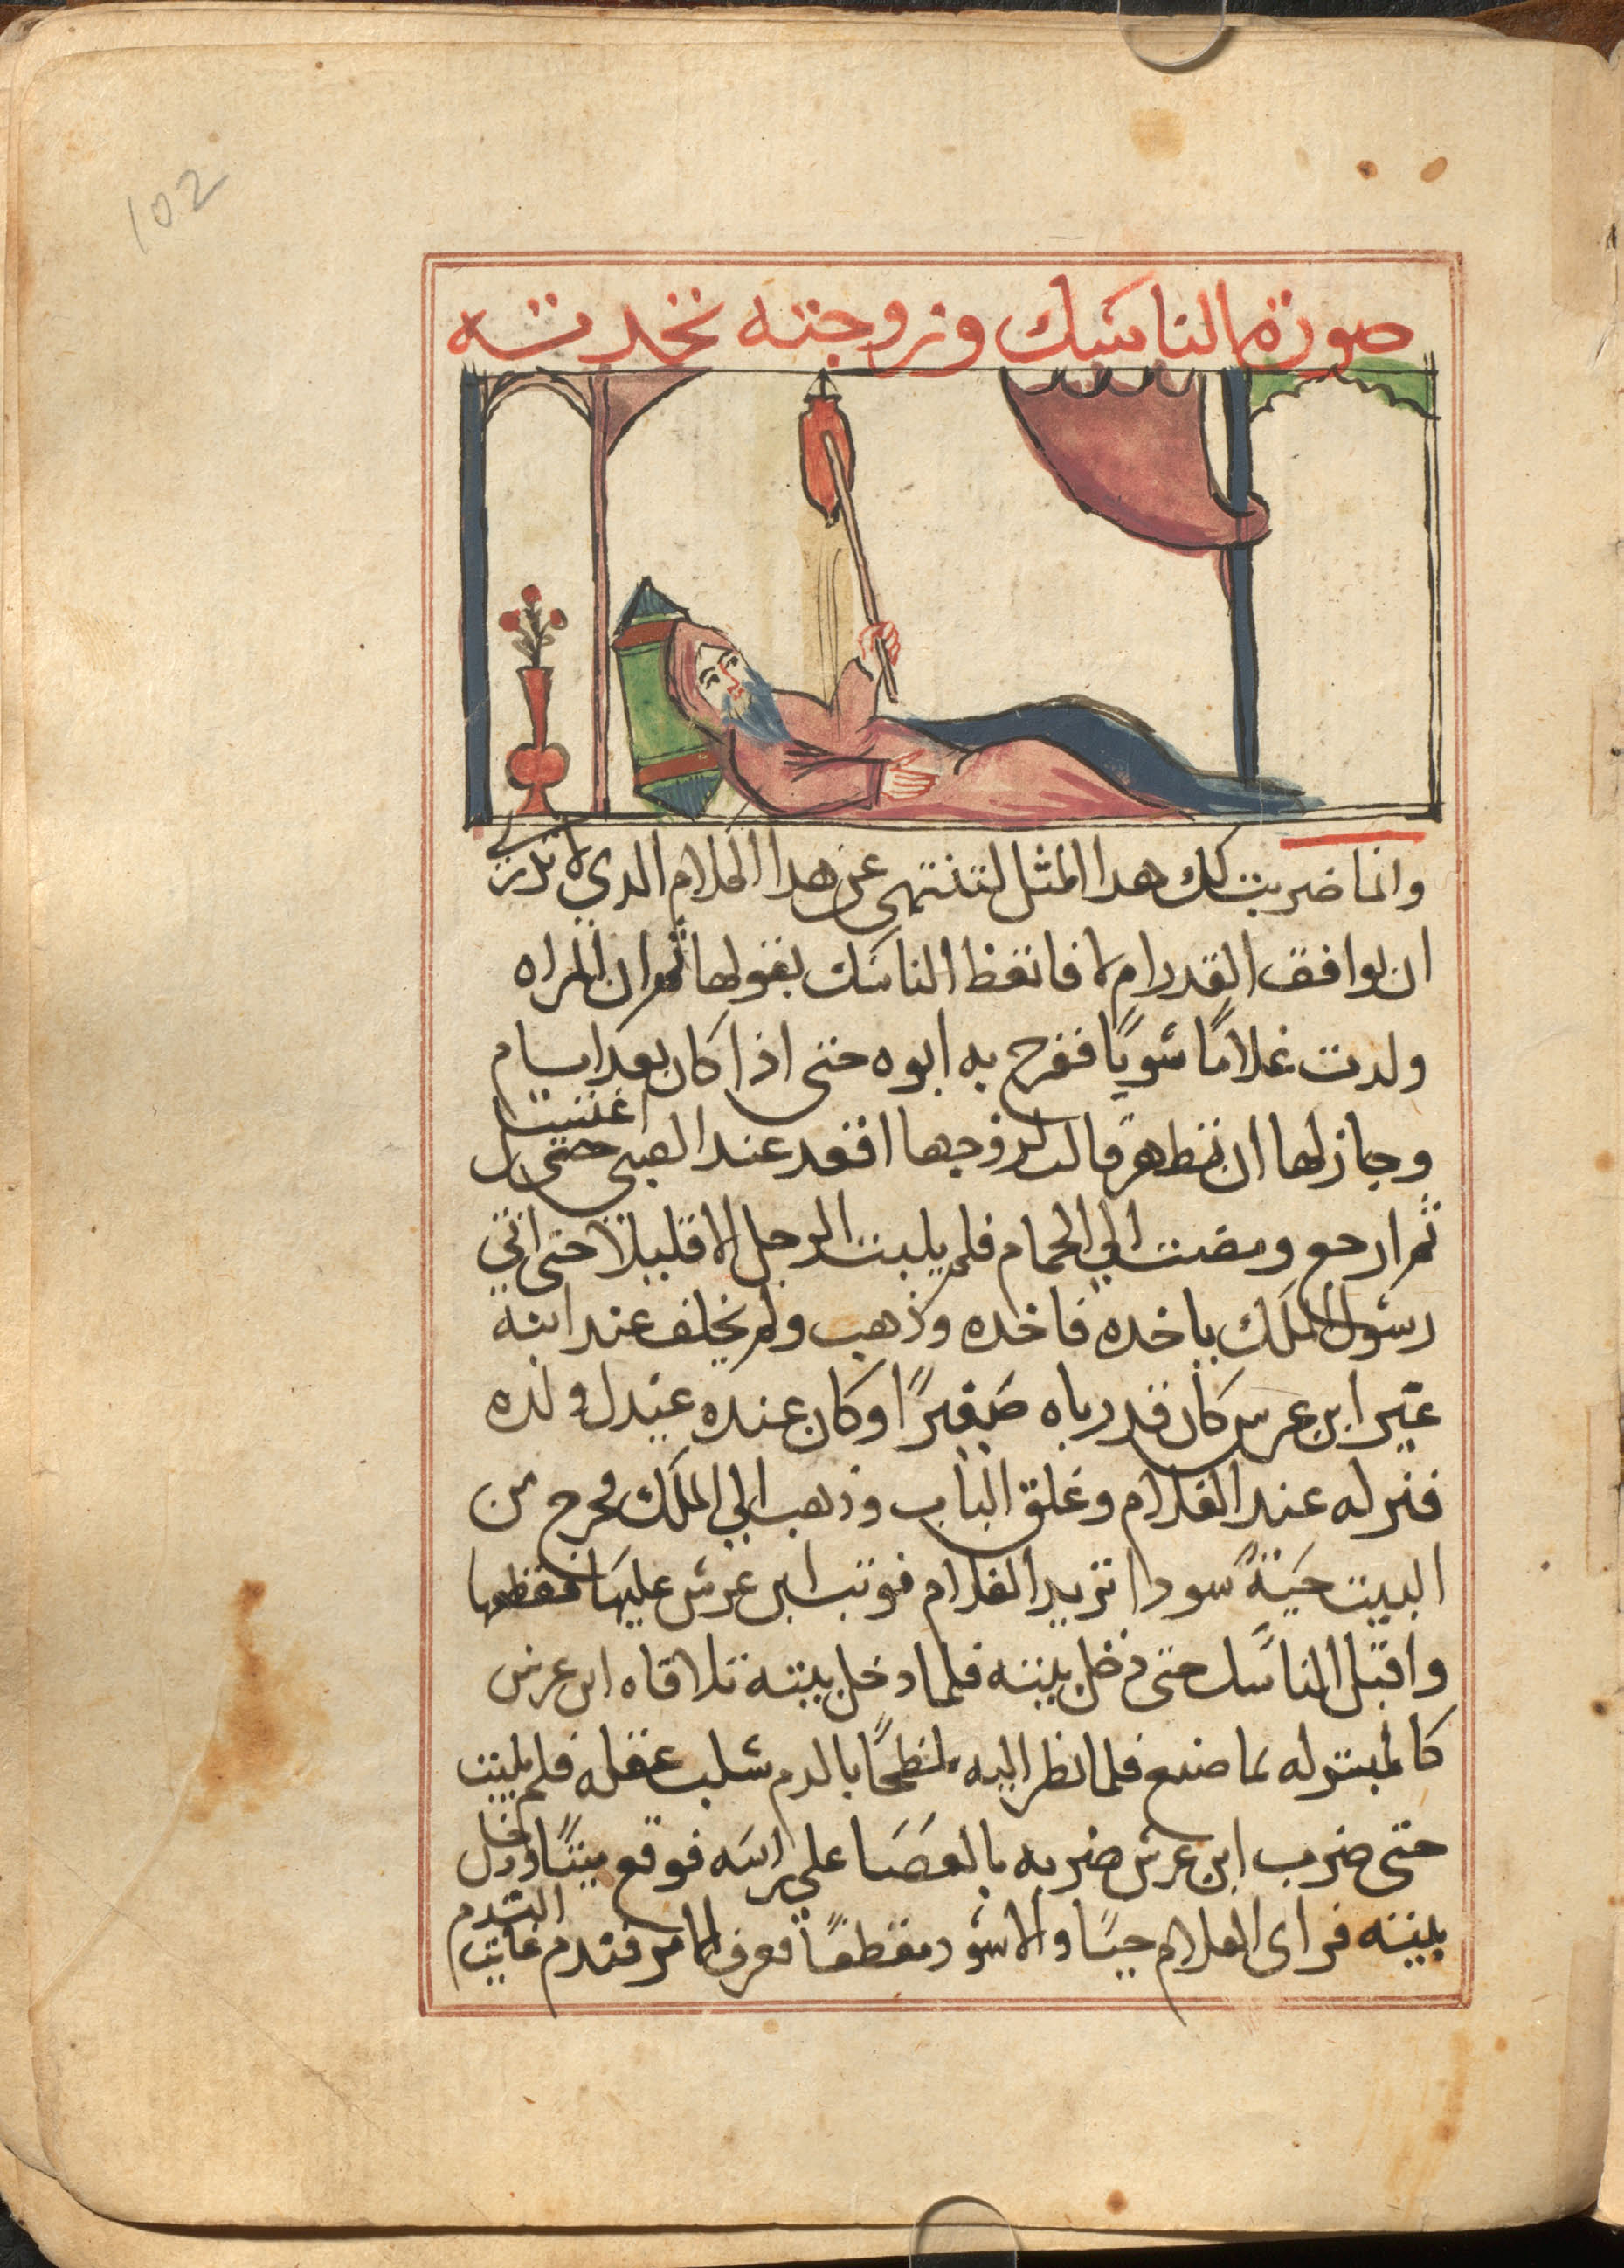 102
صورة الناسك وزوجته تحدثه
وانما ضربت لك هدا المثل لتنتهى عن هدا الكلام الدي لا تدري
ان يوافق القدر ام لا فاتعظ الناسك بقولها ثم ان المراه
ولدت غلامًا سويًا ففرح به ابوه حتى اذا كان بعد ايام
وجاز لها ان تتطهر قالت لزوجها اقعد عند الصبي حتى اغتسل
ثم ارجع ومضت الي الحمام فلم يلبت الرجل الا قليلا حتى اتي
رسول الملك ياخده فاخده وذهب ولم يخلف عند ابنه
غير ابن عرس كان قد رباه صغيرًا وكان عنده عيدل ولده
فتركه عند الغلام وغلق الباب وذهب الي الملك فخرج من
البيت حَيةً سودا تريد الغلام فوتب ابن عرس عليها فقطعها
واقبل الناسك حتى دخل بيته فلما دخل بيته تلاقاه ابن عرس
كالمبشر له بما صنع فلما نظر اليه ملطخًا بالدم سلب عقله فلم يلبت
حتى ضرب ابن عرس ضربه بالعصَا علي راسه فوقع ميتًا ودخل
بيته فراى الغلام حيًا والاسود مقطعًا فعرف الامر فندم غايت الندم